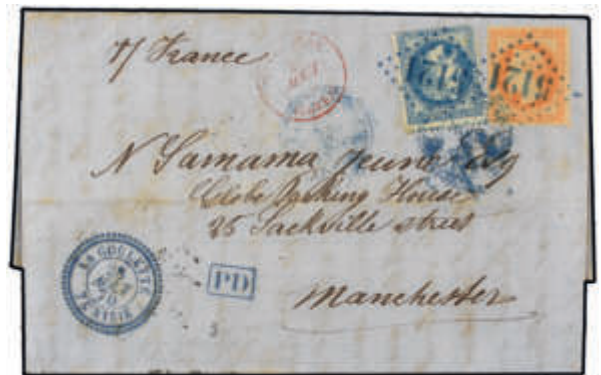 p/ France
5121
5121
N Samama Jeune Esq
Globe Packing House
26 Sackville street
Manchester
LA GOULETTE
TUNISIE
PD